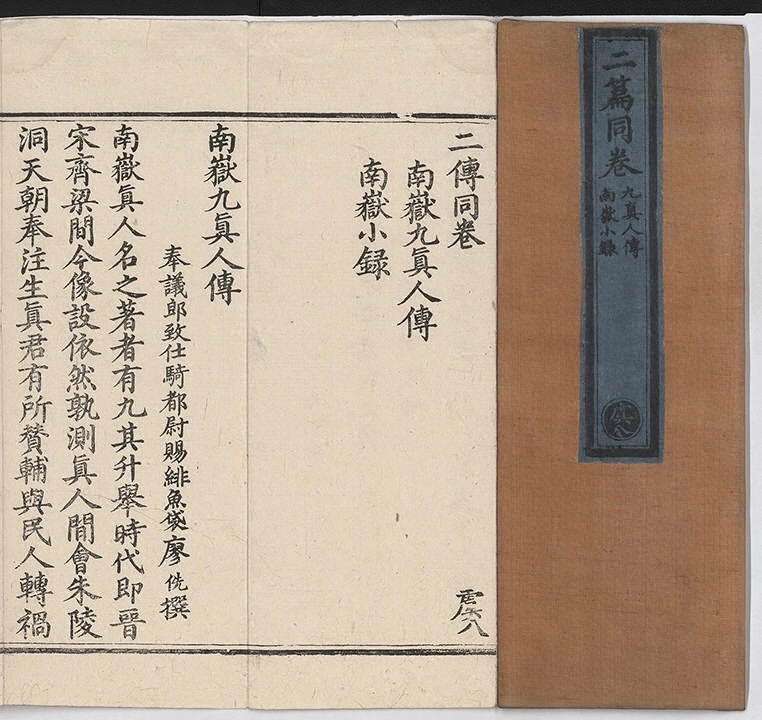 二篇同卷
九真人傳
南嶽小録
虞八
二傳同卷
虞八
南嶽九眞人傳
南嶽小録
南嶽九眞人傳
奉議郎致仕騎都尉賜緋魚袋廖侁撰
南嶽眞人名之著者有九其升舉時代即晉
宋齊梁間今像設依然孰測眞人間會朱陵
洞天朝奉注生眞君有所贊輔與民人轉禍